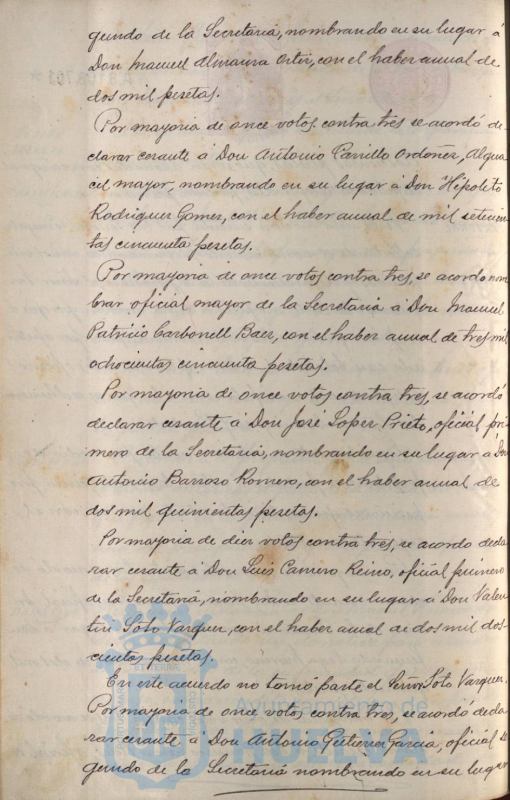 gundo de la Secretaria, nombrando en su lugar á
Don Manuel Almansa Ortiz, con el haber anual de
dos mil pesetas.
Por mayoria de once votos contra tres se acordó de-
clarar cesante á Don Antonio Carrillo Ordoñez, Algua
cil mayor, nombrando en su lugar á Don Hipoleto
Rodriguez Gomez, con el haber anual de mil setecien-
tas cincuenta pesetas.
Por mayoria de once votos contra tres, se acordo nom
brar oficial mayor de la Secretaria á Don Manuel
Patricio Carbonell Baez, con el haber anual de tres mil
ochocientas cincuenta pesetas.
Por mayoria de once votos contra tres, se acordó
declarar cesante á Don José Lopez Prieto, oficial pri
mero de la Secretaria, nombrando en su lugar á Don
Antonio Barroso Romero, con el haber anual de
dos mil quinientas pesetas.
Por mayoria de diez votos contra tres, se acordo decla
rar cesante á Don Luis Carrero Reino, oficial primero
de la Secretaria, nombrando en su lugar á Don Valen
tin Soto Vazquez, con el haber anual de dos mil dos-
cientas pesetas.
En este acuerdo no tomó parte el Señor Soto Vazquez.
Por mayoria de once votos contra tres, se acordó decla
rar cesante á Don Antonio Gutierrez Garcia, oficial se
gundo de la Secretaria nombrando en su lugar
Ayuntamiento de
HUELVA